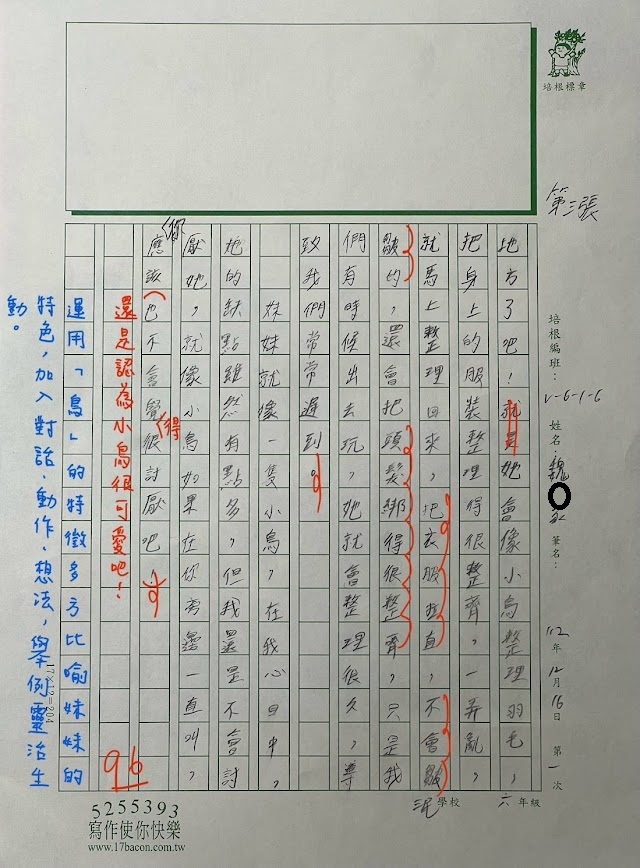 培根標章
第三張
培根編班：V-6-1-6 姓名：魏 筆名：
112年12月16日 第一次
地方了吧！就是她會像小鳥整理羽毛，
把身上的服裝整理得很整齊，一弄亂，
就馬上整理回來，把衣服拉直，不會皺
皺的，還會把頭髮綁得很整齊，只是我
們有時候出去玩，她就會整理很久，導
致我們常常遲到。
妹妹就像一隻小鳥，在我心目中，
她的缺點雖然有點多，但我還是不會討
厭她，就像小鳥如果在你旁邊一直叫，
你
應該也不會覺很討厭吧！
得
還是認為小鳥很可愛吧！
運用「鳥」的特徵多方比喻妹妹的
特色，加入對話、動作、想法，舉例靈活生
動。
96
17×12=204
六年級
學校
5255393
寫作使你快樂
www.17bacon.com.tw